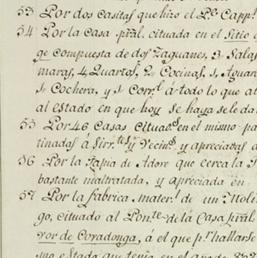 53 Por dos casitas que hizo el Pe. Capp
54 Por la casa pral. cituada en el Sitio
ge compuesta de dos Zaguanes, Salas
maras, 4 Quartos, 2 Cocinas, 1 Aguar
1 Cochera, y 1 Corrl. á todo lo que at
al estado en que hoy se haya se le da
55 Por 46 casas cituads. en el mismo pa
tinadas á Sirvtes. y Vecins. y apreciadas
56 Por la Tapia de Adove que cerca la
bastante maltratada, y apreciada en
57 Por la fabrica materl. de un Moli
go, cituado al Pone. de la Casa pral
vor de Covadonga, á el que pr. hallarse
mo estado que tenia en el año de